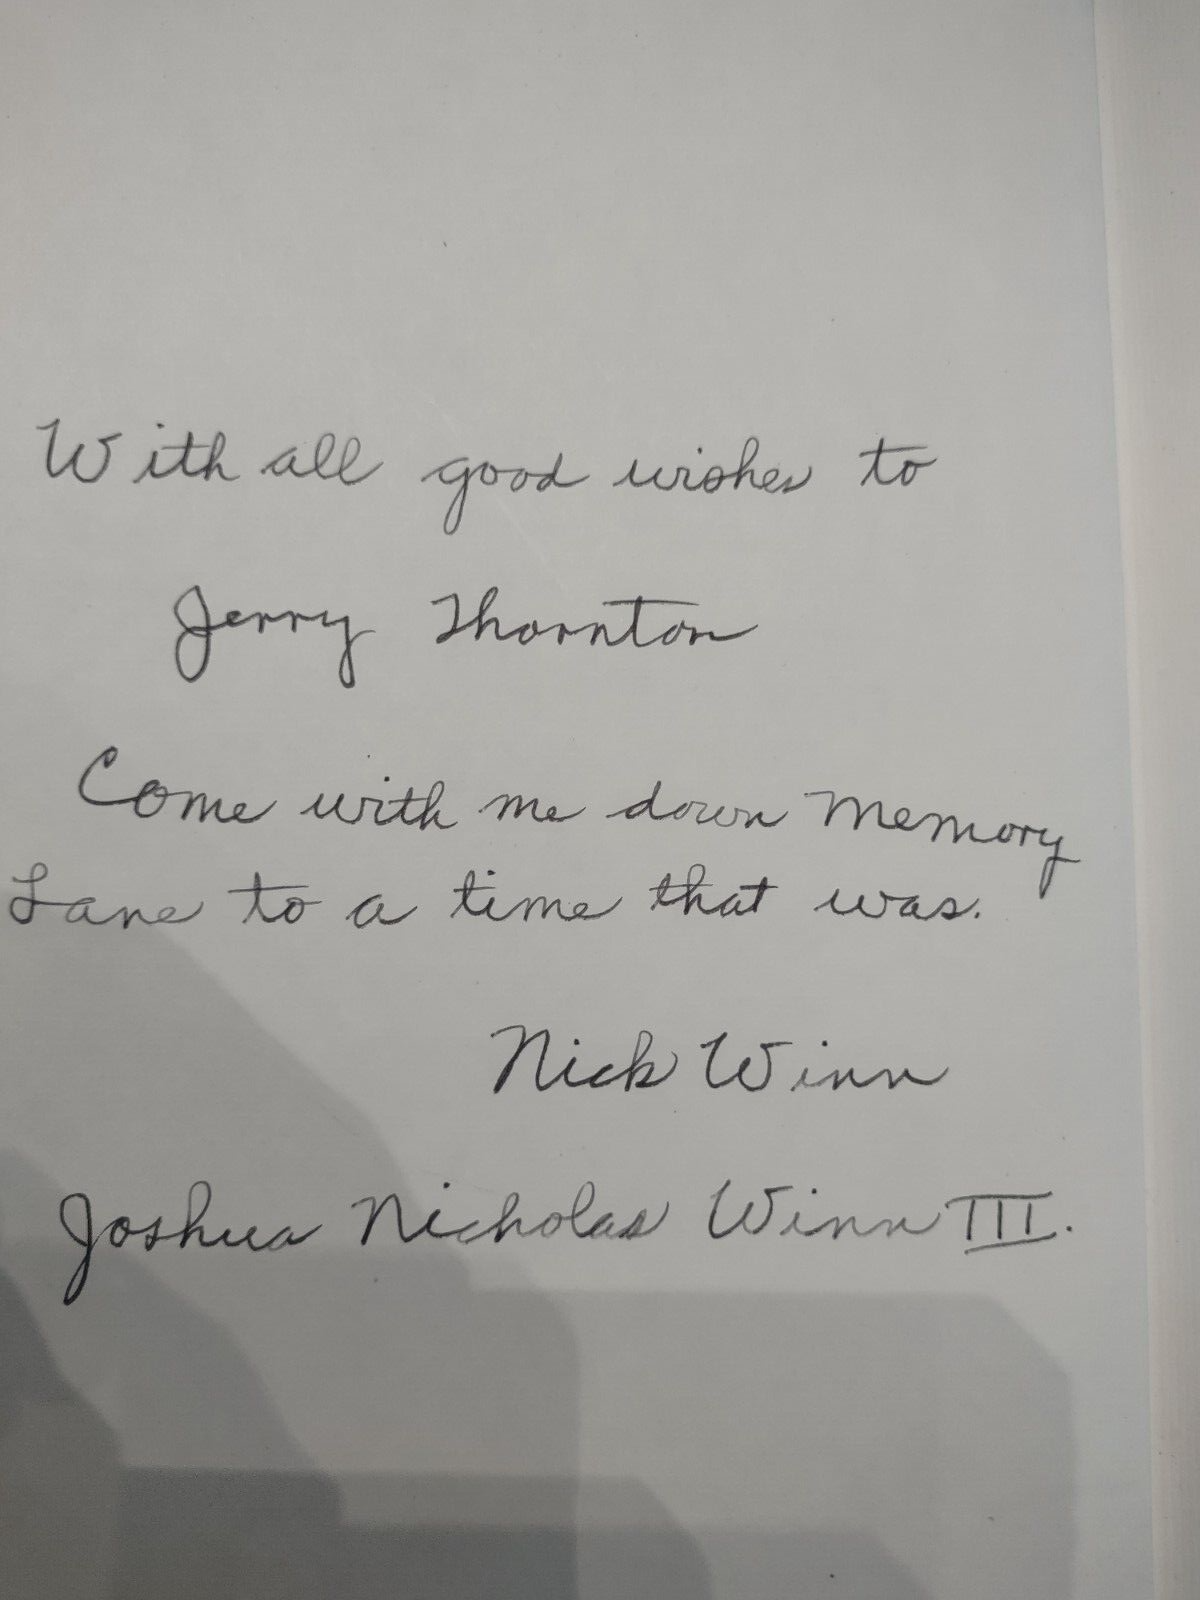 With all good wishes to
Jerry Thornton
Come with me down Memory
Lane to a time that was.
Nick Winn
Joshua Nicholas Winn III.